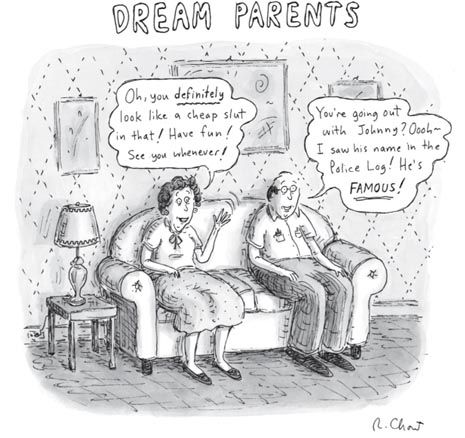 DREAM PARENTS
Oh, you definitely
look like a cheap slut
in that! Have fun!
See you whenever!
You're going out
with Johnny? Oooh~
I saw his name in the
Police Log! He's
FAMOUS!
R. Chast